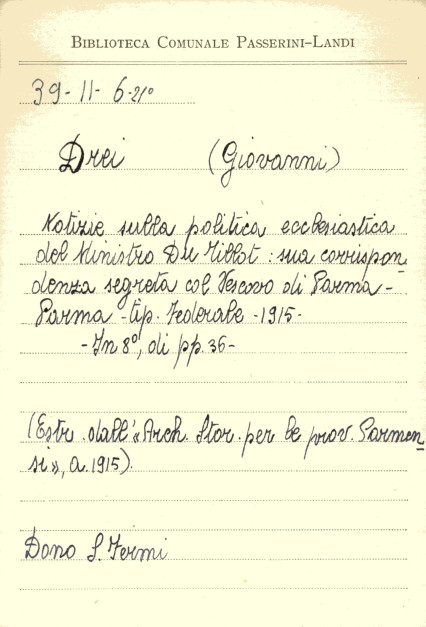 BIBLIOTECA COMUNALE PASSERINI-LANDI
39-11-6-21°
Drei (Giovanni)
Notizie sulla politica ecclesiastica
del Ministro Du Tillot : sua corrispon
denza segreta col Vescovo di Parma -
Parma - tip. Federale - 1915 -
- In 8°, di pp. 36 -
(Estr. dall'«Arch. Stor. per le prov. Parmen
si», a. 1915).
Dono S. Fermi